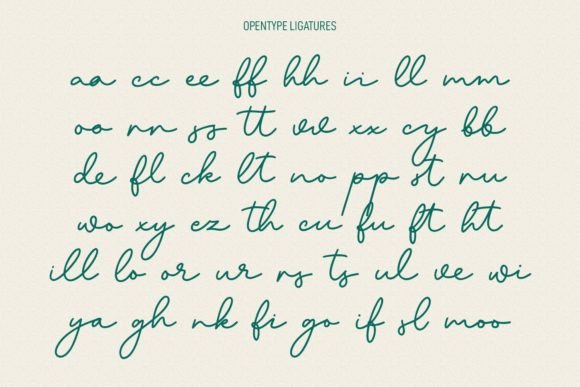 OPENTYPE LIGATURES
aa cc ee ff hh ii ll mm
oo rr ss tt vv xx cy bb
de fl ck lt no pp st ru
wo xy cz th cu fu ft ht
ill lo or ur rs ts ul ve wi
ya gh nk fi go if sl moo